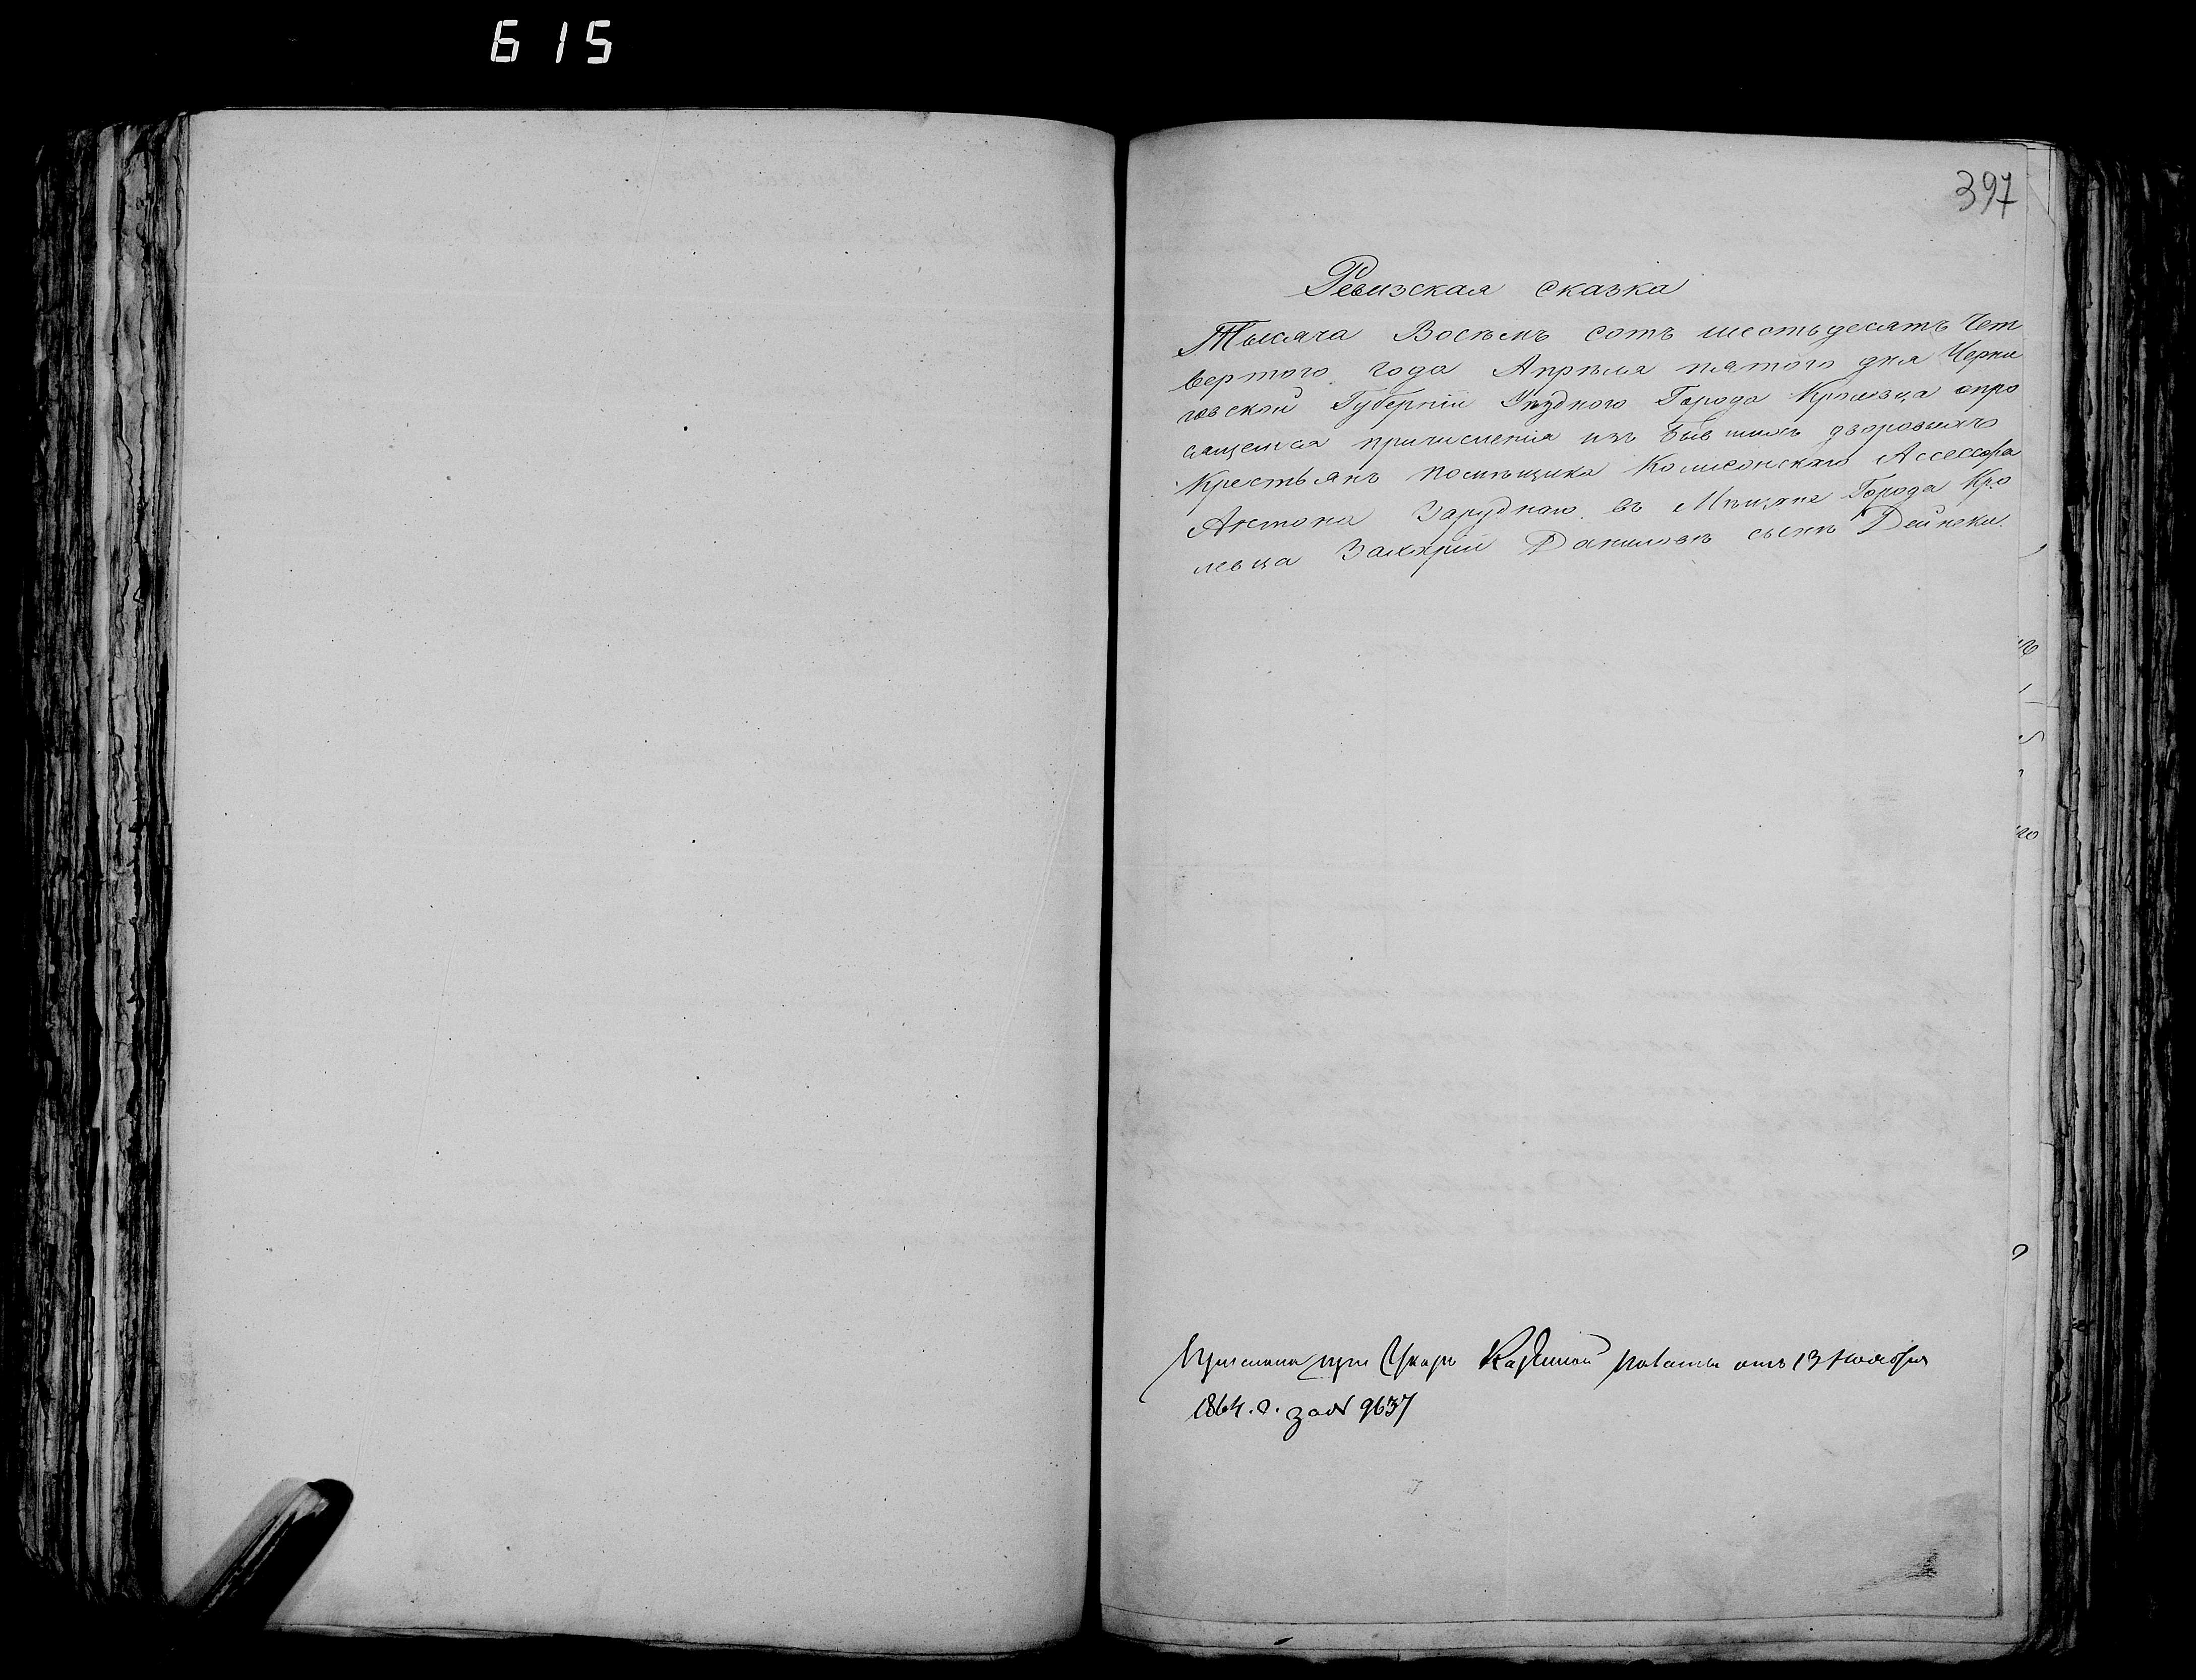 615
397
Ревизская сказка
Тысяча Восемь сотъ шестьдесятъ Чет
вертого года Апрѣля пятого дня Черни
говской Губернiи Уѣзднаго Города Кролевца о про
сящемся причисленiя изъ бывшихъ дворовыхъ
Крестьянъ помѣщика Колежскаго Ассессора
Антона Заруднаго въ Мѣщане Города Кро
левца Захарiи Даниловъ сынъ Дейнеки
Прислана при Указѣ Казенной Палаты отъ 13 Ноября
1864. г. за № 9637